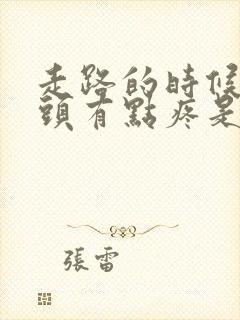 走路的時候
頭有點疼是
張雷